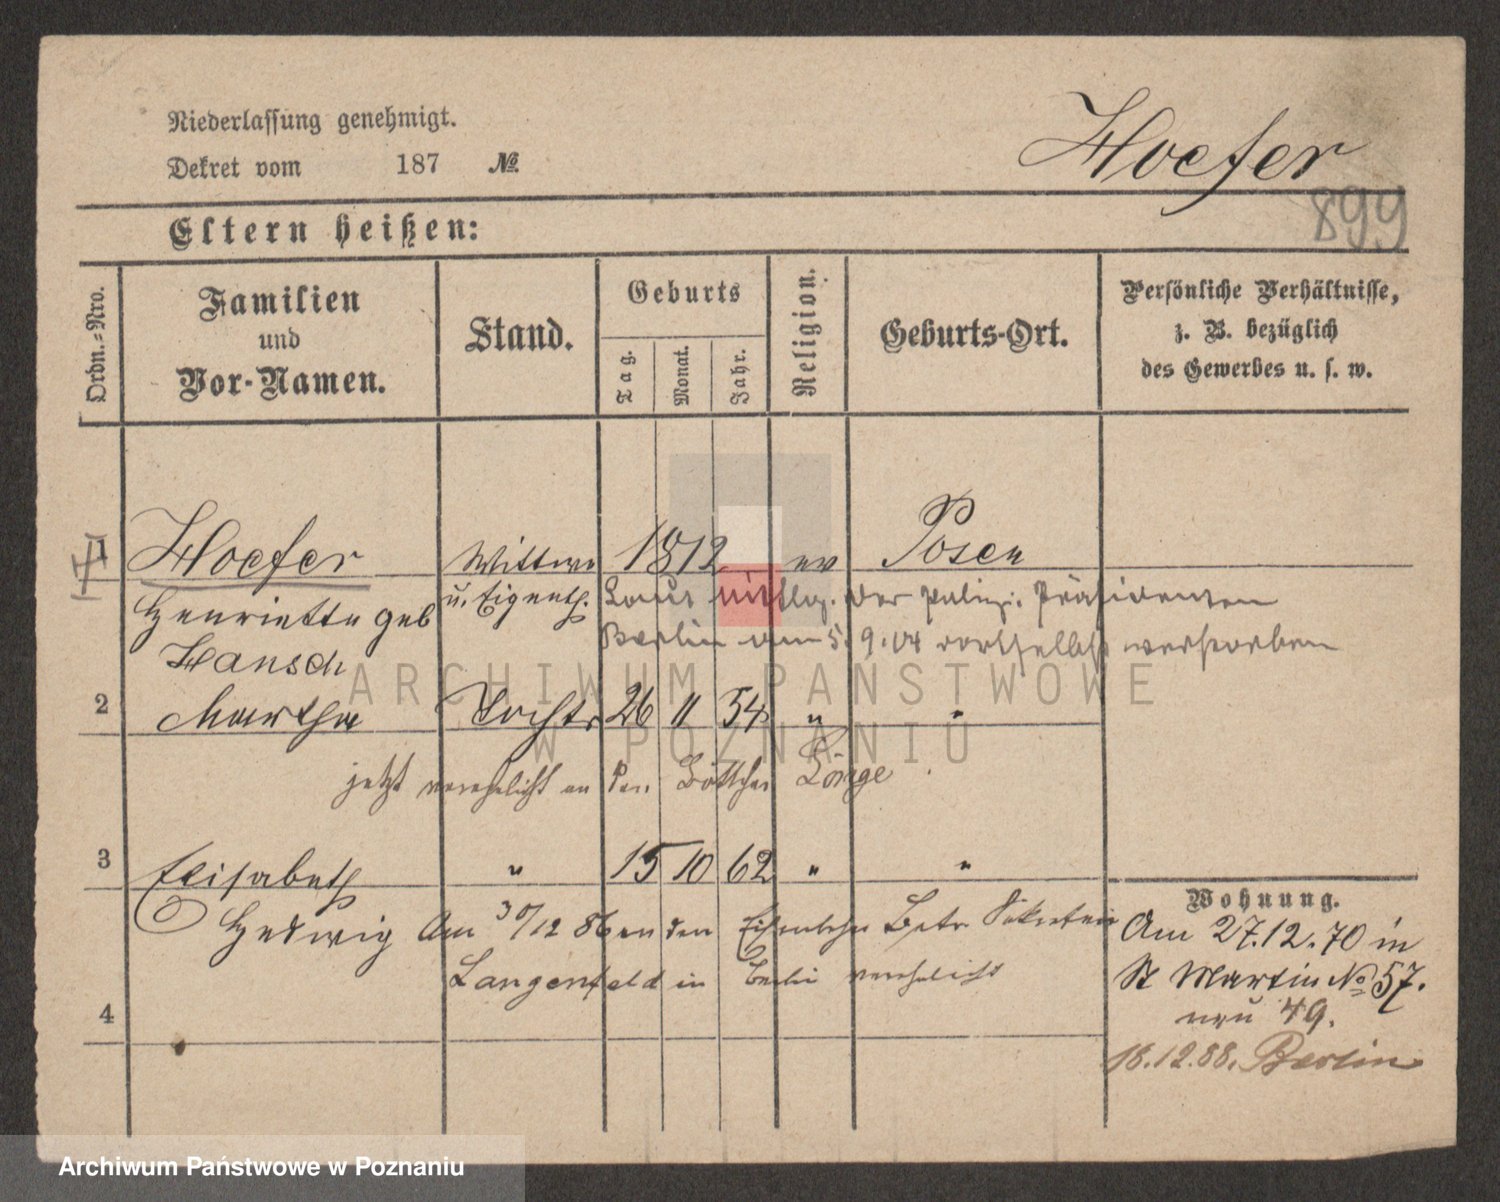 Niederlassung genehmigt.
Dekret vom 187 №
Hoefer
899
Eltern heißen:
Ordn.-Nro.
Familien
und
Vor-Namen.
Stand.
Geburts
Tag.
Monat.
Jahr.
Religion.
Geburts-Ort.
Persönliche Verhältnisse,
z. B. bezüglich
des Gewerbes u. s. w.
1 Hoefer Wittwe 1812 ev Posen
Henriette geb u. Eigenth. Laut Mittlg. der Poliz. Präsidenten
Berlin vom 5.9.04 verstorben
Hansch
2 Martha Tochter 26 11 54 " "
jetzt verehelicht an den Böttcher Lönge
3 Elisabeth " 15 10 62 " "
Hedwig Am 30/12 86 an den Eisenbahn Betr. Sekretair
Langenfeld in Berlin verehelicht
4
Wohnung.
Am 27.12.70 in
St Martin No 57.
neu 49.
18.12.88. Berlin
ARCHIWUM PAŃSTWOWE
W POZNANIU
Archiwum Państwowe w Poznaniu